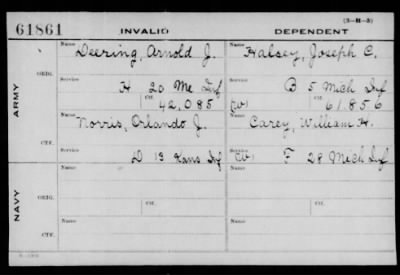 (3-H-5)
61861 INVALID DEPENDENT
Name Deering, Arnold J. Name Halsey, Joseph C.
ORIG.
Service H 20 Me Inf Service B 5 Mich Inf
Ctf. 42,085 (W) Ctf. 61.856
ARMY
Name Norris, Orlando J. Name Carey, William H.
CTF.
Service D 13 Kans Inf Service (W) F 28 Mich Inf
Name Name
ORIG.
Service Service
Ctf. Ctf.
NAVY
Name Name
CTF.
Service Service